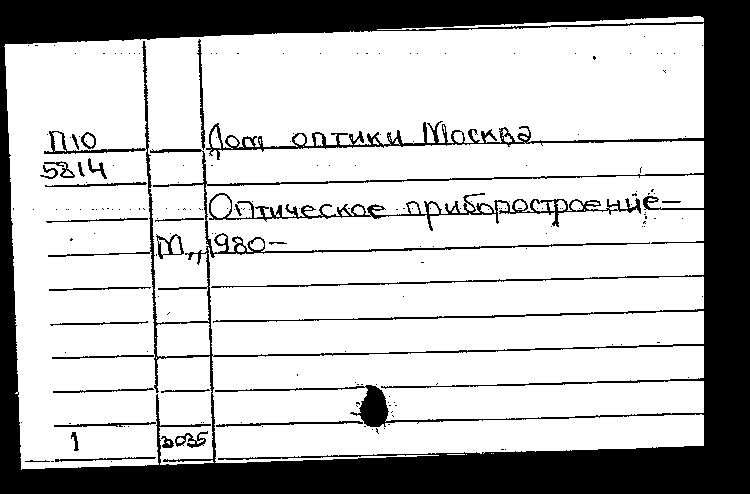 П10
Дом оптики Москва
5814
Оптическое приборостроение–
М., 1980–
1
3035